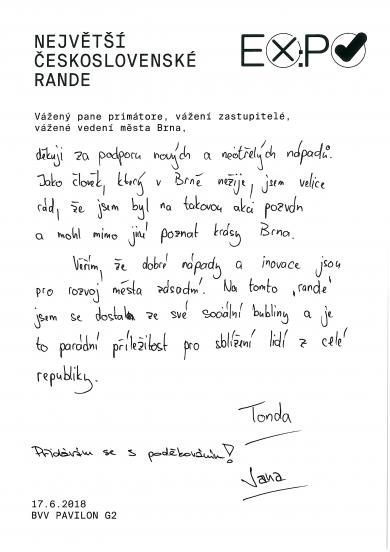 NEJVĚTŠÍ
ČESKOSLOVENSKÉ
RANDE
EX:PO
Vážený pane primátore, vážení zastupitelé,
vážené vedení města Brna,
děkuji za podporu nových a neotřelých nápadů.
Jako člověk, který v Brně nežije, jsem velice
rád, že jsem byl na takovou akci pozván
a mohl mimo jiné poznat krásy Brna.
Věřím, že dobré nápady a inovace jsou
pro rozvoj města zásadní. Na tomto „rande"
jsem se dostal ze své sociální bubliny a je
to parádní příležitost pro sblížení lidí z celé
republiky.
Tonda
Přidávám se s poděkováním!
Jana
17.6.2018
BVV PAVILON G2